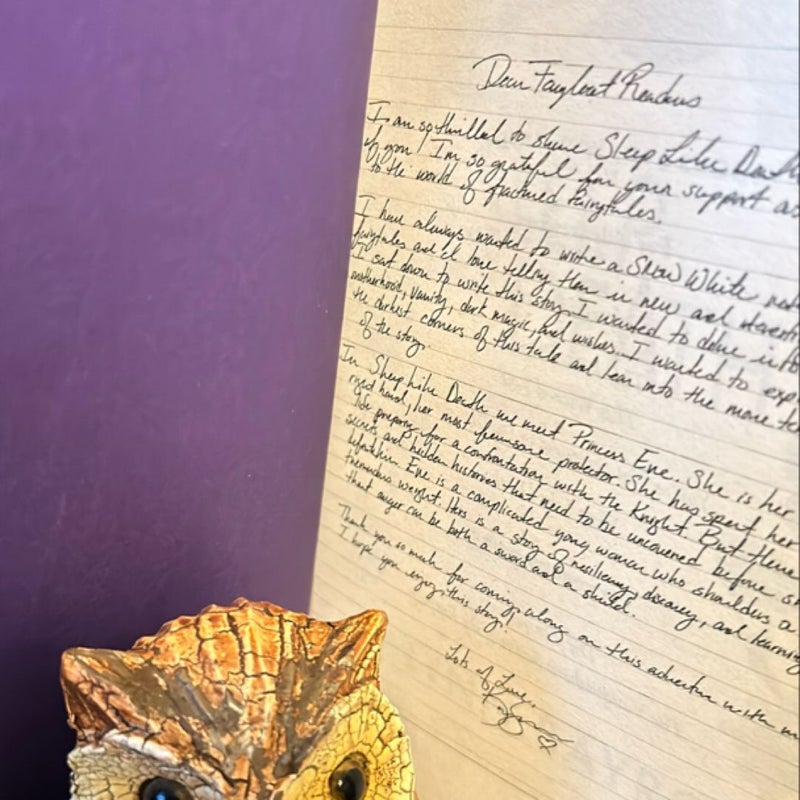 Dear Fairyloot Readers
I am so thrilled to share Sleep Like Death
of you! I'm so grateful for your support as
to the world of fractured fairytales.
I have always wanted to write a Snow White
fairytales and I love telling them in new and
I sat down to write this story I wanted to delve into
motherhood, vanity, dark magic, and wishes. I wanted to
the darkest corners of this tale and lean into the more
of the story.
In Sleep Like Death we meet Princess Eve. She is her
right hand, her most fearsome protector. She has spent her
life preparing for a confrontation with the Knight. But there
secrets and hidden histories that need to be uncovered before
defeat him. Eve is a complicated young woman who shoulders a
tremendous weight. Hers is a story of resiliency, discovery, and learning
that anger can be both a sword and a shield.
Thank you so much for coming along on this adventure with
I hope you enjoy this story!
Lots of Love,